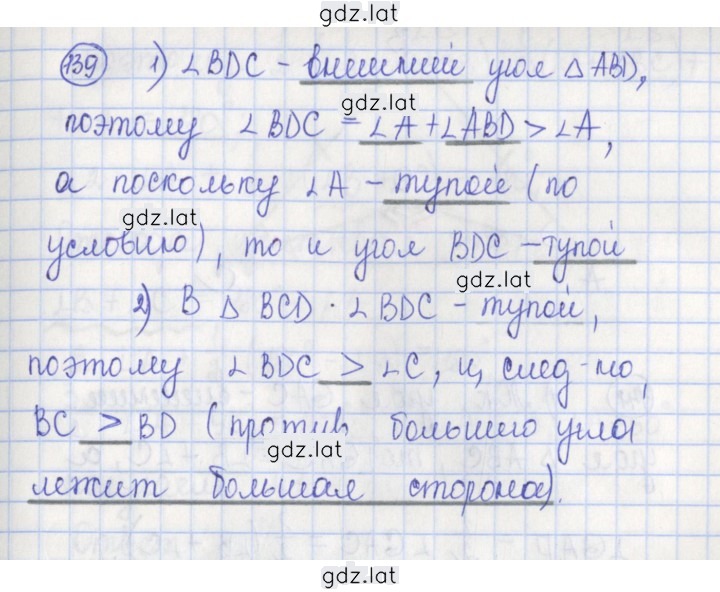 gdz.lat
139 1) ∠BDC - внешний угол △ABD,
gdz.lat
поэтому ∠BDC = ∠A + ∠ABD > ∠A,
а поскольку ∠A - тупой (по
gdz.lat
условию), то и угол BDC - тупой
gdz.lat
2) В △ BCD · ∠BDC - тупой,
поэтому ∠BDC > ∠C, и, след-но,
BC > BD (против большего угла
gdz.lat
лежит большая сторона).
gdz.lat